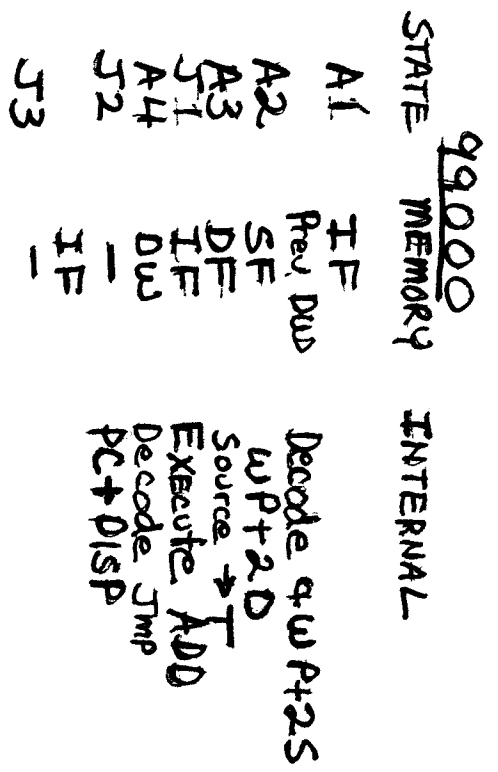 99000
STATE MEMORY INTERNAL
A1 IF
Prev DW Decode & WP+2S
A2 SF WP+2D
A3 DF Source → T
J1 IF Execute ADD
A4 DW Decode Jmp
J2 — PC+DISP
IF
J3 —